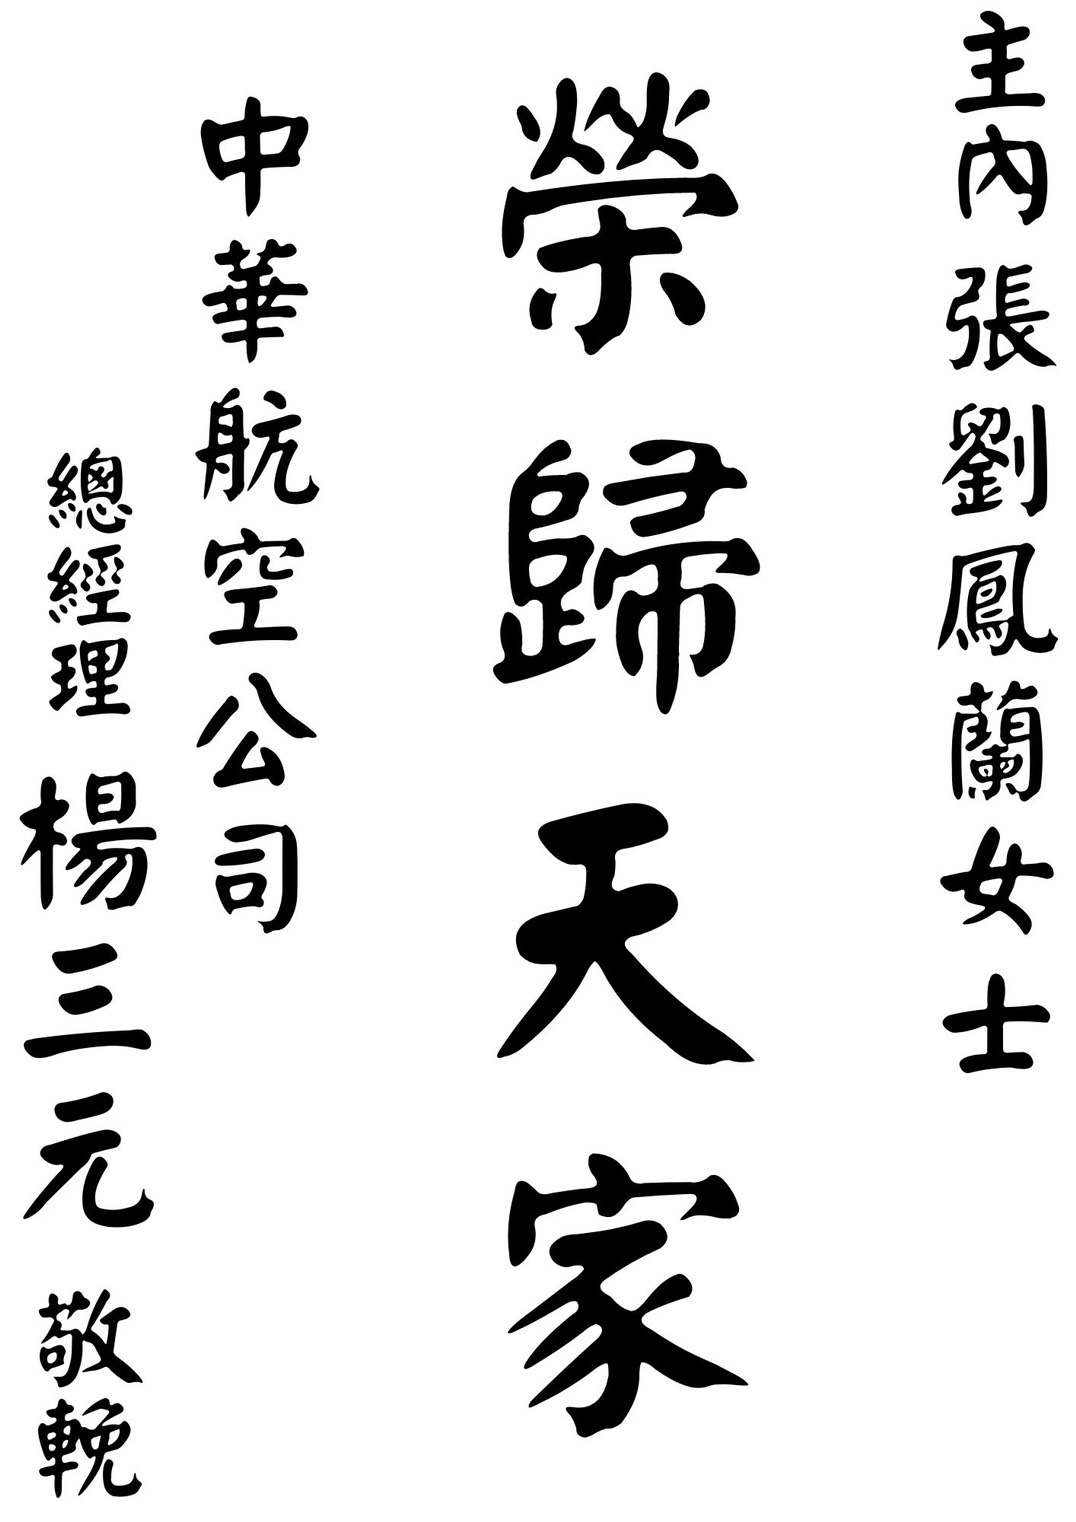 主內張劉鳳蘭女士
榮歸天家
中華航空公司
總經理 楊三元 敬輓